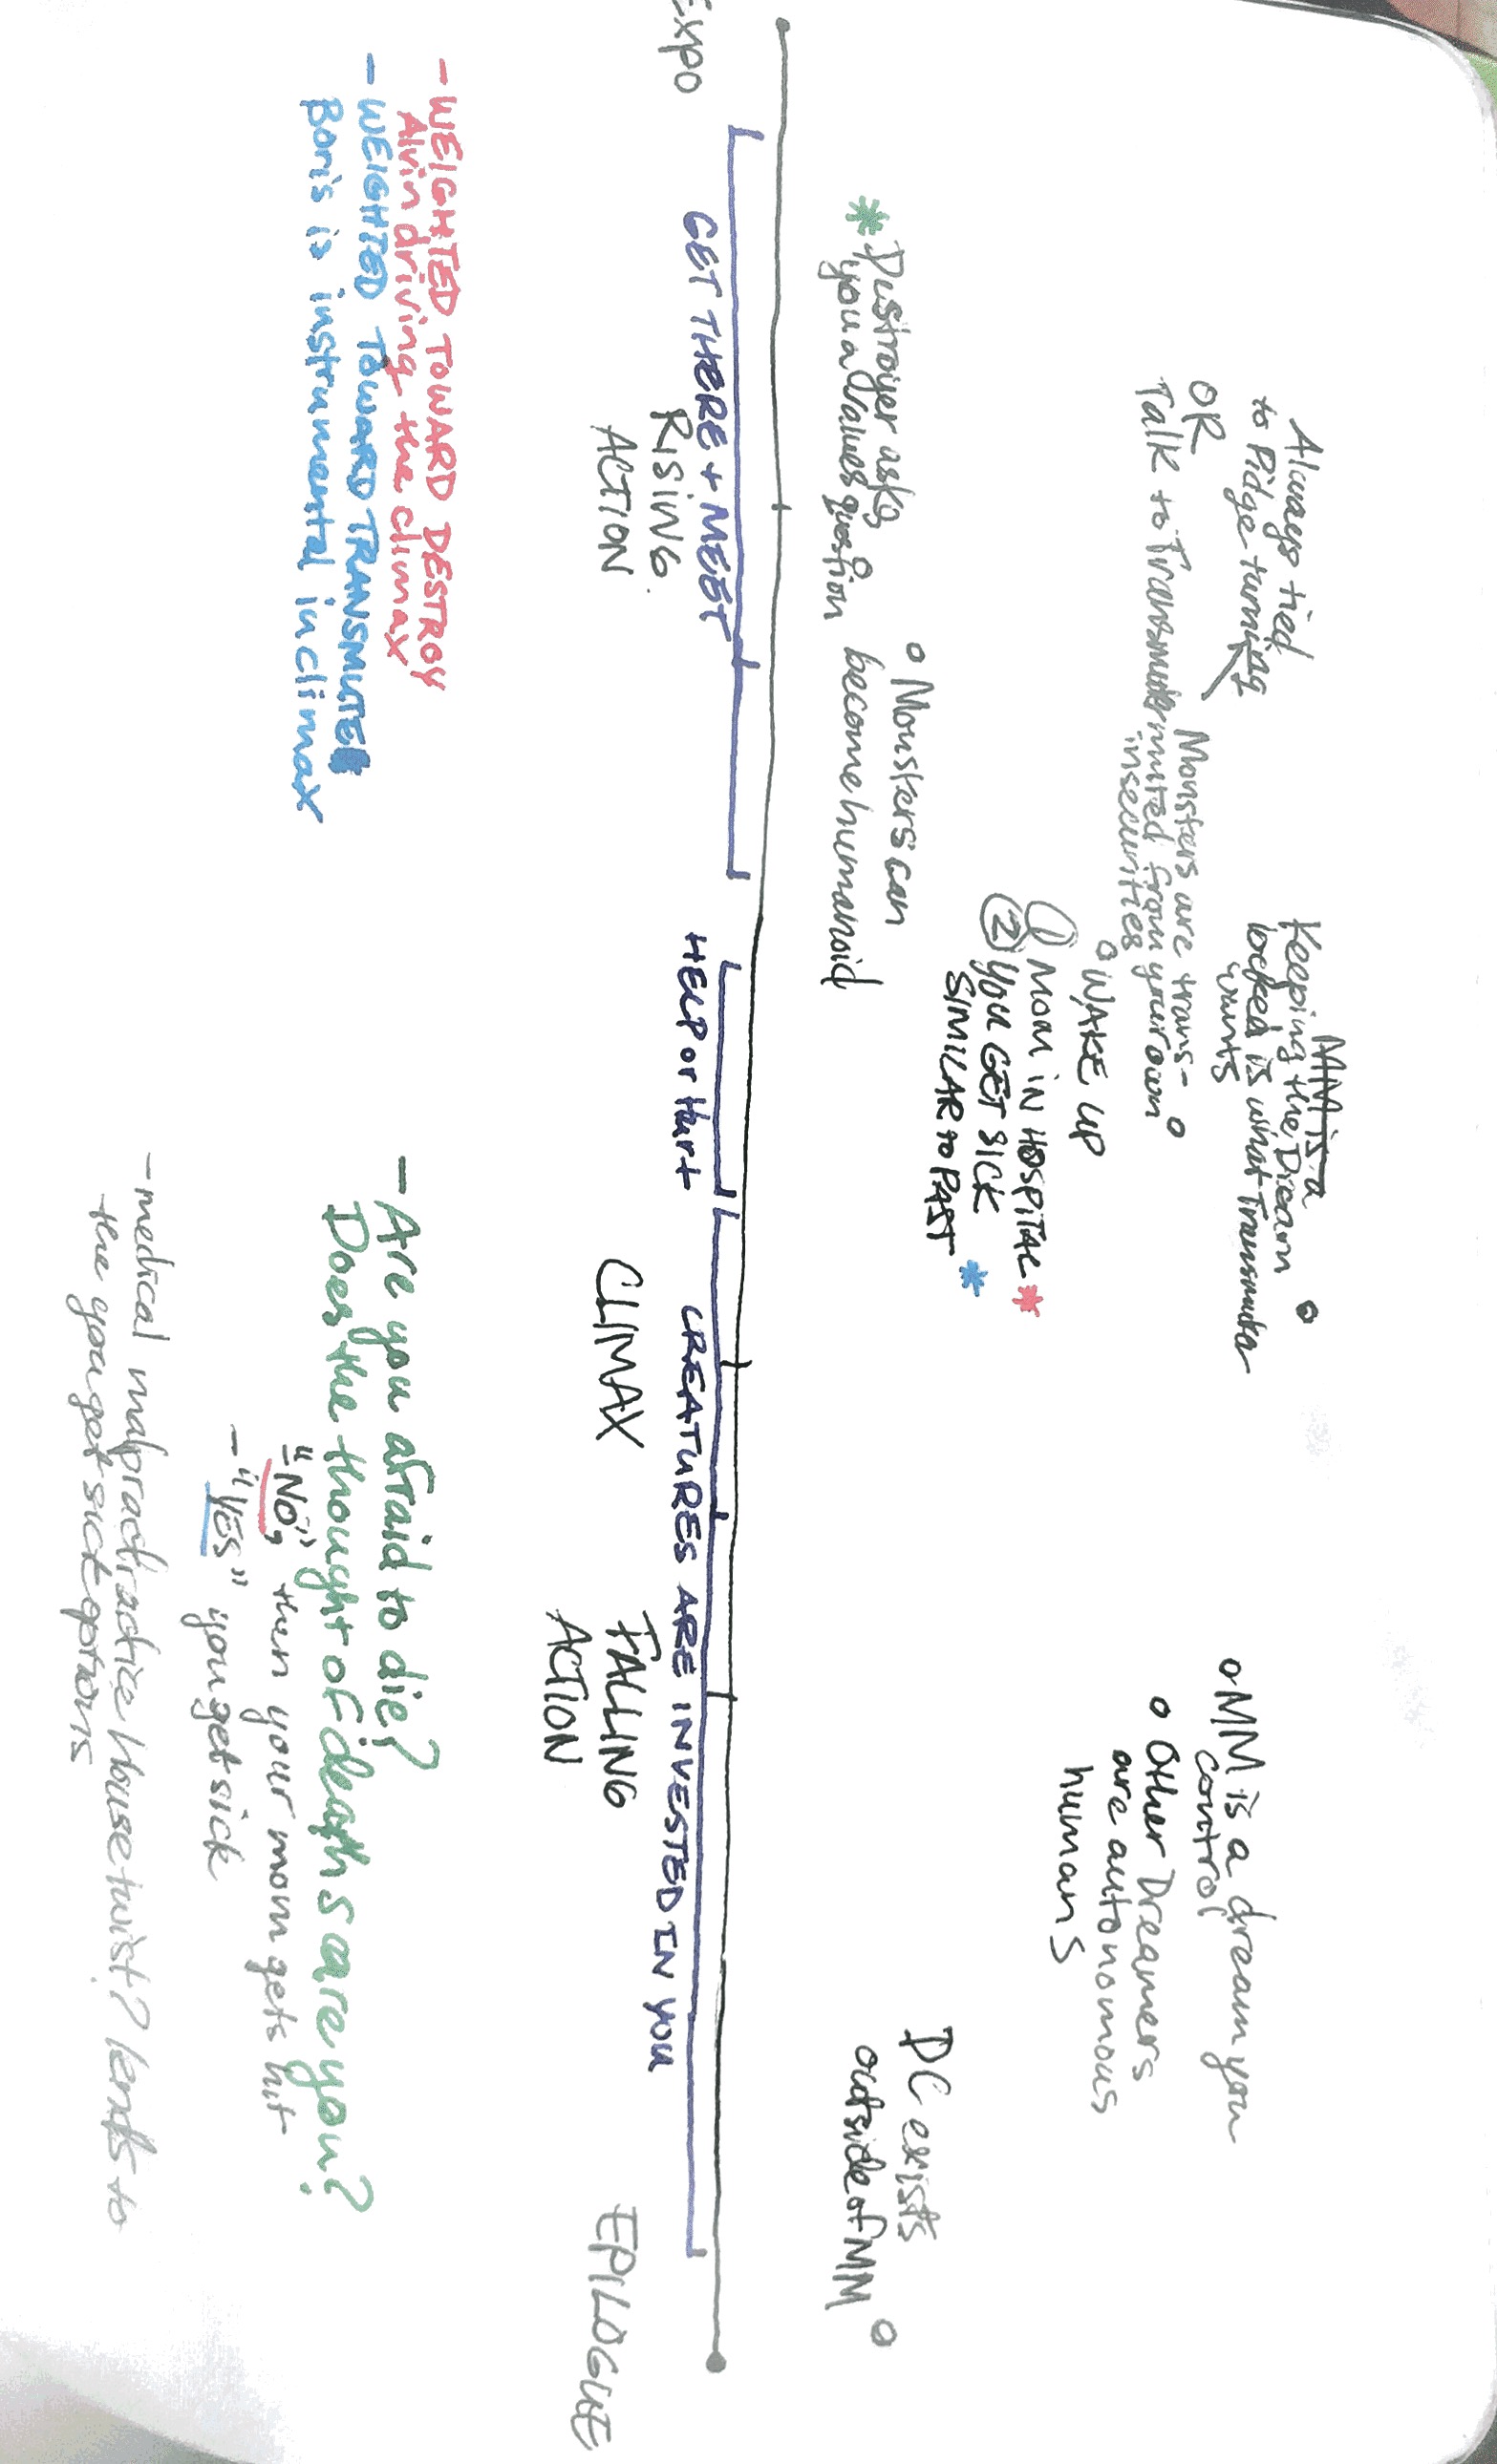 Always tied
to Pidge turning
OR
Talk to Transmuter
MM is a
Keeping the Dream
locked is what Transmuter
wants
Monsters are trans-
muted from your own
insecurities
WAKE UP
① MOM IN HOSPITAL *
② YOU GET SICK
SIMILAR to PAST *
o MM is a dream you
control
o Other Dreamers
are autonomous
humans
* Destroyer asks
you a values question
o Monsters can
become humanoid
DC exists
outside of MM
GET THERE + MEET
HELP or Hurt
CREATURES ARE INVESTED IN YOU
Expo
RISING
ACTION
CLIMAX
FALLING
ACTION
EPILOGUE
- WEIGHTED TOWARD DESTROY
Alvin driving the climax
- WEIGHTED TOWARD TRANSMUTE
Boris is instrumental in climax
- Are you afraid to die?
Does the thought of death scare you?
- "NO", then your mom gets hit
- "YES" you get sick
- medical malpractractice House twist? lends to
the you get sick options